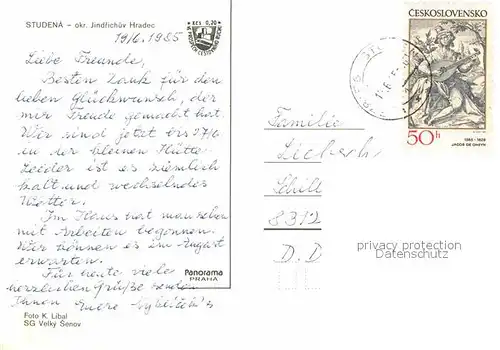 STUDENÁ – okr. Jindřichův Hradec
19/6. 1985
KčS 0,20
Liebe Freunde,
Besten Dank für den
lieben Glückwunsch, der
mir Freude gemacht hat.
Wir sind jetzt bis 27/6
in der kleinen Hütte
Leider ist es ziemlich
kalt und wechselndes
Wetter.
Im Haus hat man schon
mit Arbeiten begonnen.
Wir können es im August
erwarten.
Für heute viele
herzlichen Grüße senden
Ihnen Euere
Panorama
PRAHA
Foto K. Líbal
SG Velký Šenov
ČESKOSLOVENSKO
50h
1565 - 1629
JACOB DE GHEYN
Familie
Schill
8312
D.D
privacy protection
Datenschutz